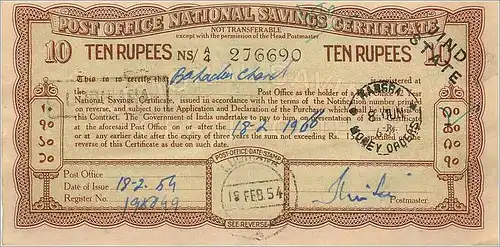 POST OFFICE NATIONAL SAVINGS CERTIFICATE
NOT TRANSFERABLE
except with the permission of the Head Postmaster
10 TEN RUPEES NS/ A/4 276690 TEN RUPEES 10
JIND STATE
This is to certify that Bahadur Chand registered at
Post Office as the holder of a Year
National Savings Certificate, issued in accordance with the terms of the Notification number printed
on reverse, and subject to the Application and Declaration of the Purchase which
this Contract. The Government of India undertake to pay to him, on presentation of certificate
at the aforesaid Post Office on or after the 18-2-1966
or at any earlier date after the expiry of three years the sum not exceeding Rs. 15 specified on
reverse of this Certificate as due on such date.
8 JUN
MONEY ORDERS
POST-OFFICE-DATE-STAMP
18 FEB 54
SEE REVERSE
Post Office
Date of Issue 18-2-54
Register No.
Postmaster.